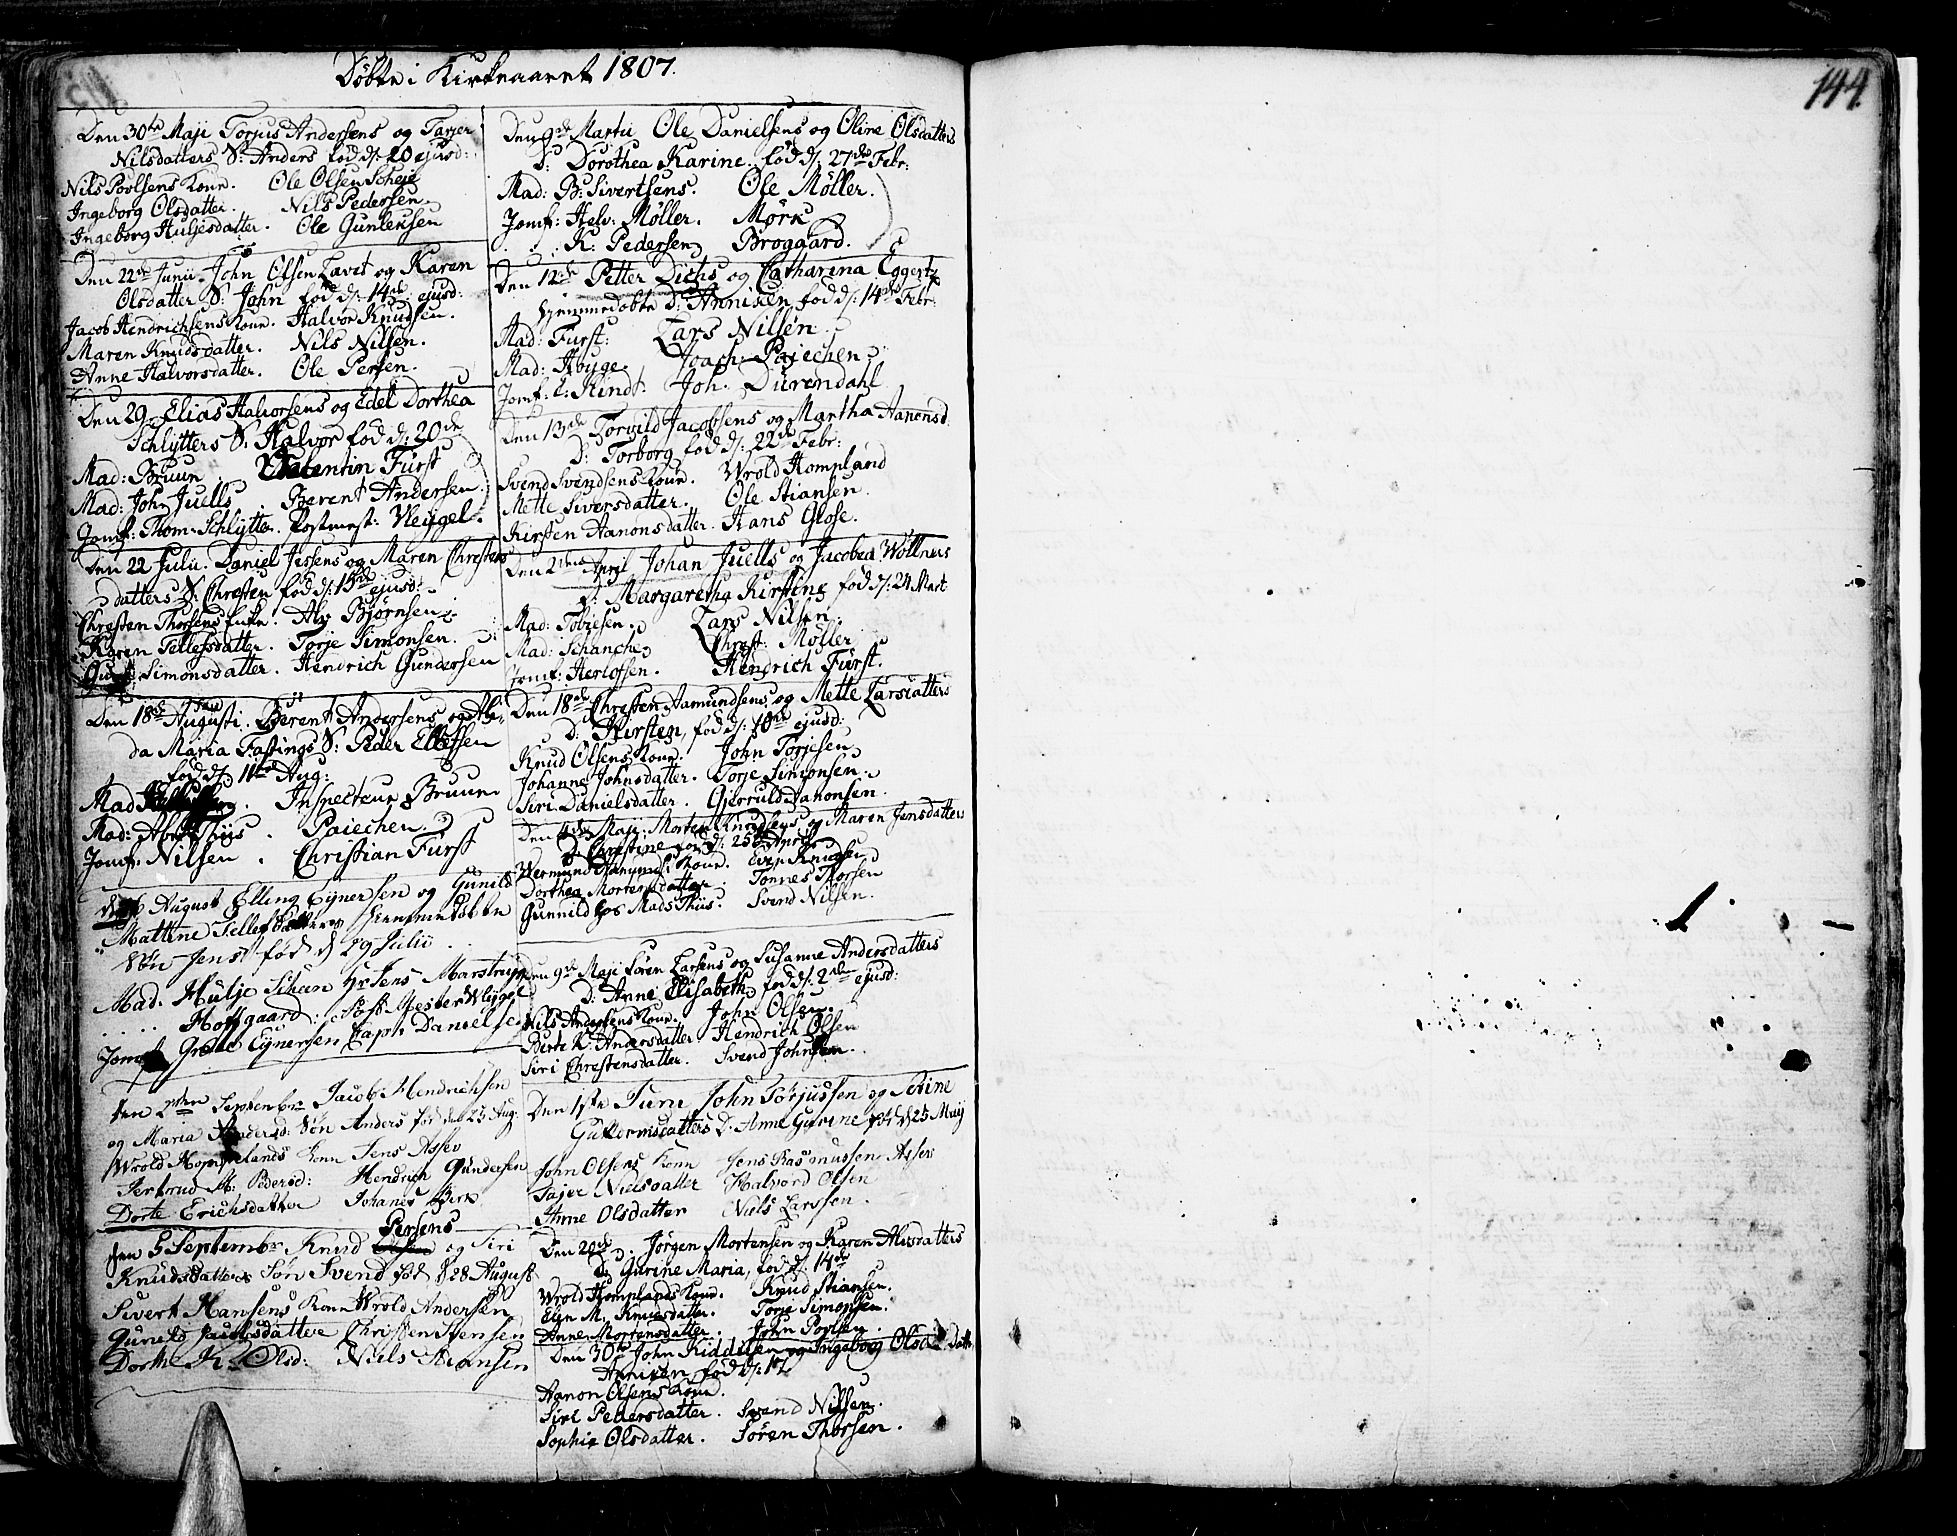 Døbte i Kirkeaaret 1807.
Den 30te Maji Torjus Andersens og Tarjer
Nilsdatters S: Anders fød d: 20 ejusd:
Nils Povlsens Kone. Ole Olsen Scheie
Ingeborg Olsdatter. Nils Pedersen.
Ingeborg Huljesdatter. Ole Gunleksen
Den 22de Junii John Olsen Lavet og Karen
Olsdatter S: John fød d: 14de ejusd:
Jacob Hendrichsens Kone. Halvor Knudsen.
Maren Knudsdatter. Nils Nilsen.
Anne Halvorsdatter. Ole Persen.
Den 29 Elias Halvorsens og Edel Dorthea
Schlytters S: Halvor fød d: 20de
Mad: Bruun. Valentin Fürst
Mad: John Juells. Berent Andersen.
Jomf: Thom: Schlytter. Postmest: Vleugel.
Den 22 Julii. Daniel Jessens og Maren Chrestens
datters S: Chresten fød d: 15de ejusd:
Chresten Thorsens Enke. Alv Bjørnsen
Karen Tellefsdatter. Torje Simonsen.
Simonsdatter. Hendrich Gundersen
Den 18de Augusti. Berent Andersens og
da Maria Fastings S: Peder Ellefsen
fød d: 11te Aug:
Mad. Inspecteur Bruun
Mad: Thiis. Paiechen
Jomf: Nilsen. Christian Fürst
August Elling Eynersen og Gunild
Mattine Tellefsdatters hiemmedøbte
Søn Jens fød d 29 Julii
Mad. Hulje Marstrup
Hoffgaard: Post Mester Vleügel
Jomf: Grete Eynersen Capt: Danielsen
Den 2den Septembr Jacob Hendrichsen
og Maria Andersd: Søn Anders fød den 25 Aug:
Wrold Hommelands Kone Jens Asser
Jertrud M: Pedersd: Hendrich Gundersen
Dorte Erichsdatter Johanes Birk
Persens
Den 5 Septembr Knud og Siri
Knudsdatters Søn Svend fød d 28 August
Sivert Hansens Kone Wrold Andersen
Gunild Jacobsdatter Christen Jensen
Dorthe K: Olsd: Niels Stiansen
Den 9de Martii Ole Danielsens og Oline Olsdatters
D: Dorothea Karine. fød d: 27de Febr:
Mad: B: Sivertsens. Ole Møller.
Jomf: Helv: Møller. Mørk
K: Pedersen Broggard.
Den 12de Petter Dichs og Catharina Eggertz
hjemmedøbte D: Anniken fød d: 14de Febr:
Mad: Furst: Lars Nilsen.
Mad: Houge. Joach: Paiechen
Jomf: C: Kindt. Joh. Durendahl
Den 13de Torvild Jacobsens og Martha Aanonsd.
D: Torborg fød d: 22de Febr:
Svend Svendsens Kone. Wrold Hompland
Mette Siversdatter. Ole Stiansen.
Kirsten Aanonsdatter. Hans Glose.
Den 2den April Johan Juells og Jacobea Wollnus
D: Margaretha Kirstine fød d: 24 Mart
Mad: Tobiesen. Lars Nilsen.
Mad: Schanche Chrest: Møller
Jomf: Herlofsen. Hendrich Fürst.
Den 18de Chresten Aamundsens og Mette Larsdatters
D: Kirsten, fød d: 10de ejusd:
Knud Olsens Kone. John Torjesen
Johanne Johnsdatter. Torje Simonsen.
Siri Danielsdatter. Gjeruld Aanonsen.
Den Maji: Morten Knudsens og Maren Jensdatters
D: Christine fød d: 25de April
Wermund Kone. Even Knudsen
Dorthea Mortensdatter. Tønnes Thorsen
Gunnild hos Mads Thiis. Svend Nilsen.
Den 9de Maji Søren Larsens og Susanne Andersdatters
D: Anne Elisabeth, fød d: 2den ejusd:
Nils Andersens Kone. John Olsen.
Berte K: Andersdatter Hendrich Olsen
Siri Chrestensdatter. Svend Johnsen.
Den 1ste Juni John Torjussen og Serine
Guttormsdatters D: Anne Gurine fød d 25 Maij
John Olsens Kone Jens Rasmussen Asser
Tajer Nielsdatter Halvord Olsen
Anne Olsdatter Niels Larssen.
Den 20de. Jørgen Mortensen og Karen Alvsdatters
D: Gurine Maria, fød d: 14de
Wrold Homplands Kone. Knud Stiansen.
Elen M. Knudsdatter. Torje Simonsen.
Anne Mortensdatter. John Povlsen.
Den 30te John Kiddelsen og Ingeborg Olsd: Datt:
Anniken fød d: 17
Aanon Olsens Kone.
Siri Pettersdatter. Svend Nilsen.
Sophie Olsdatter. Søren Thorsen.
144.